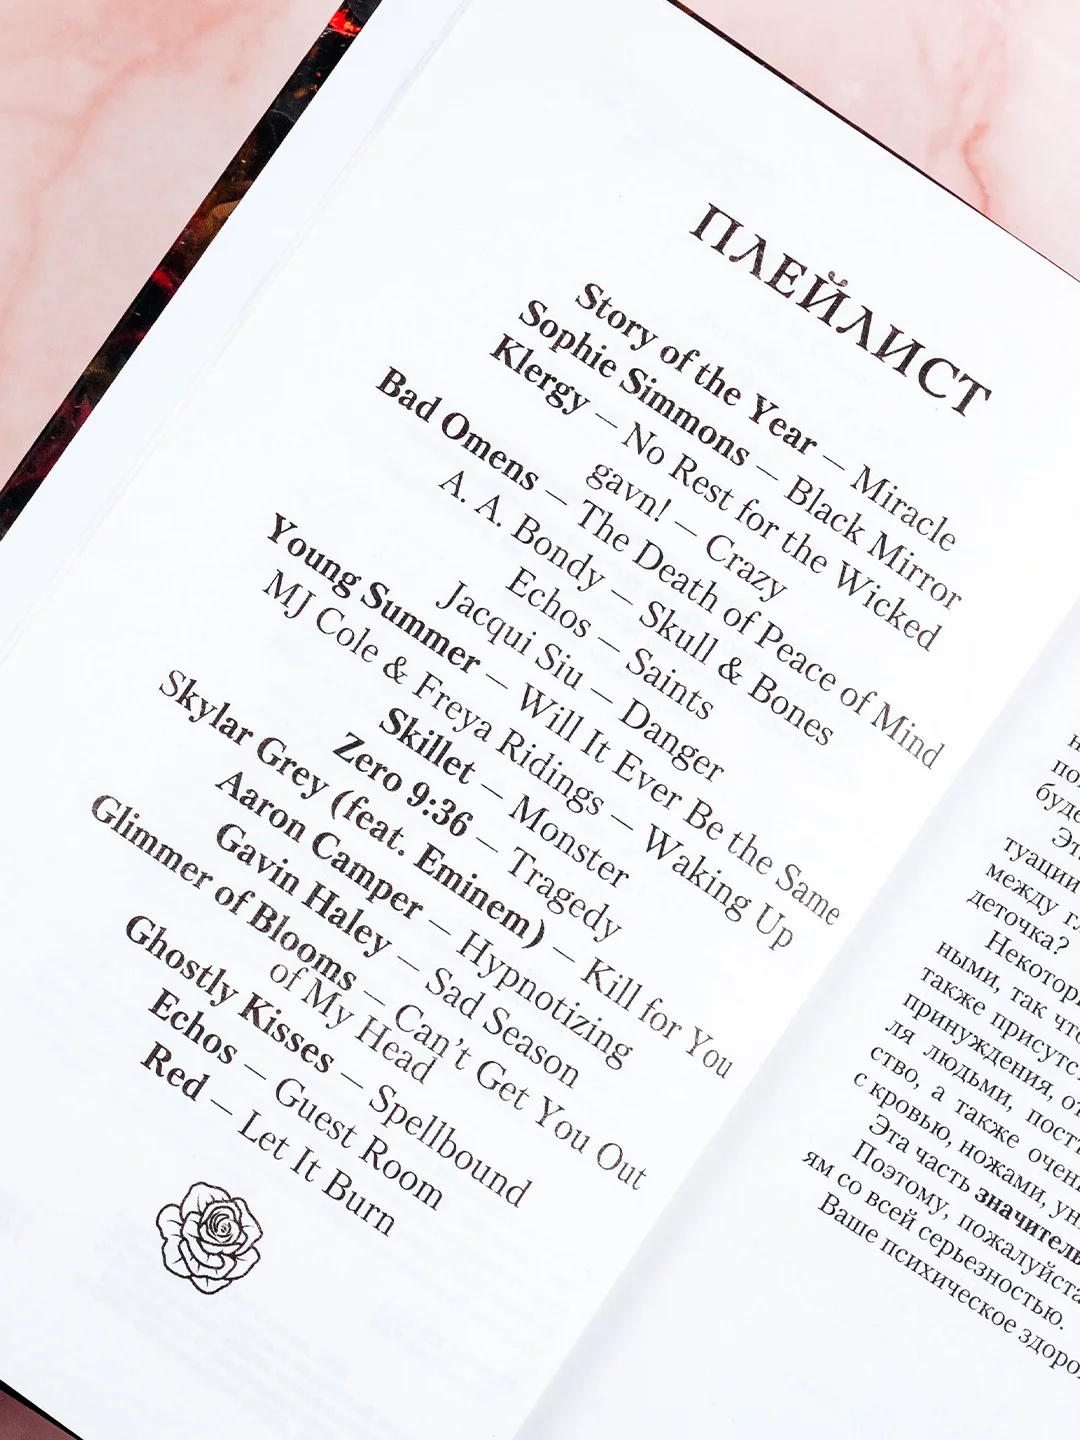 ПЛЕЙЛИСТ
Story of the Year – Miracle
Sophie Simmons – Black Mirror
Klergy – No Rest for the Wicked
gavn! – Crazy
Bad Omens – The Death of Peace of Mind
A. A. Bondy – Skull & Bones
Echos – Saints
Jacqui Siu – Danger
Young Summer – Will It Ever Be the Same
MJ Cole & Freya Ridings – Waking Up
Skillet – Monster
Zero 9:36 – Tragedy
Skylar Grey (feat. Eminem) – Kill for You
Aaron Camper – Hypnotizing
Gavin Haley – Sad Season
Glimmer of Blooms – Can't Get You Out
of My Head
Ghostly Kisses – Spellbound
Echos – Guest Room
Red – Let It Burn
буде
туации
между
деточка?
ными, так
также
принуждения,
ля людьми,
ство, а также
с кровью, ножами,
Эта часть
Поэтому, пожалуйста
ям со всей серьезностью.
Ваше психическое